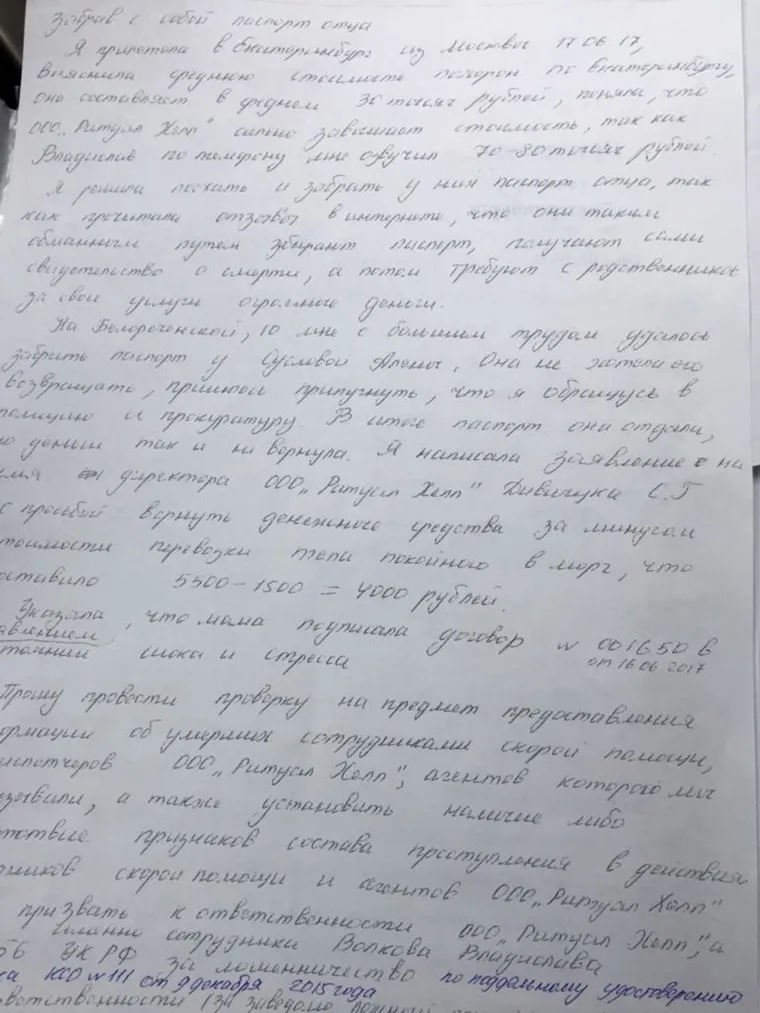 Забрав с собой паспорт отца
Я прилетела в Екатеринбург из Москвы 17 06 17,
выяснила среднюю стоимость похорон по Екатеринбургу,
она составляет в среднем 30 тысяч рублей, поняла, что
ООО „Ритуал Хелп" сильно завышает стоимость, так как
Владислав по телефону мне озвучил 70-80 тысяч рублей.
Я решила поехать и забрать у них паспорт отца, так
как прочитала отзывы в интернете, что они таким
обманным путем забирают паспорт, получают сами
свидетельство о смерти, а потом требуют с родственников
за свои услуги огромные деньги.
На Белореченской, 10 мне с большим трудом удалось
забрать паспорт у Сусловой Алены. Она не хотела его
возвращать, пришлось припугнуть, что я обращусь в
полицию и прокуратуру. В итоге паспорт она отдала,
но деньги так и не вернула. Я написала заявление на
имя директора ООО „Ритуал Хелп" С.Г
с просьбой вернуть денежные средства за минусом
стоимости перевозки тела покойного в морг, что
оставило 5500-1500 = 4000 рублей.
Указала, что мама подписала договор № 001650 в
от 16.06 2017
тоянии шока и стресса
Прошу провести проверку на предмет предоставления
ормации об умерших сотрудниками скорой помощи,
испетчеров ООО „Ритуал Хелп", агентов которого мы
вызывали, а также установить наличие либо
тствие признаков состава преступления в действиях
дников скорой помощи и агентов ООО „Ритуал Хелп".
призвать к ответственности ООО „Ритуал Хелп", а
именно сотрудника Волкова Владислава
УК РФ за мошенничество по поддельному удостоверению
КСО № 111 от 9 декабря 2015 года
тветственности (за заведомо ложный